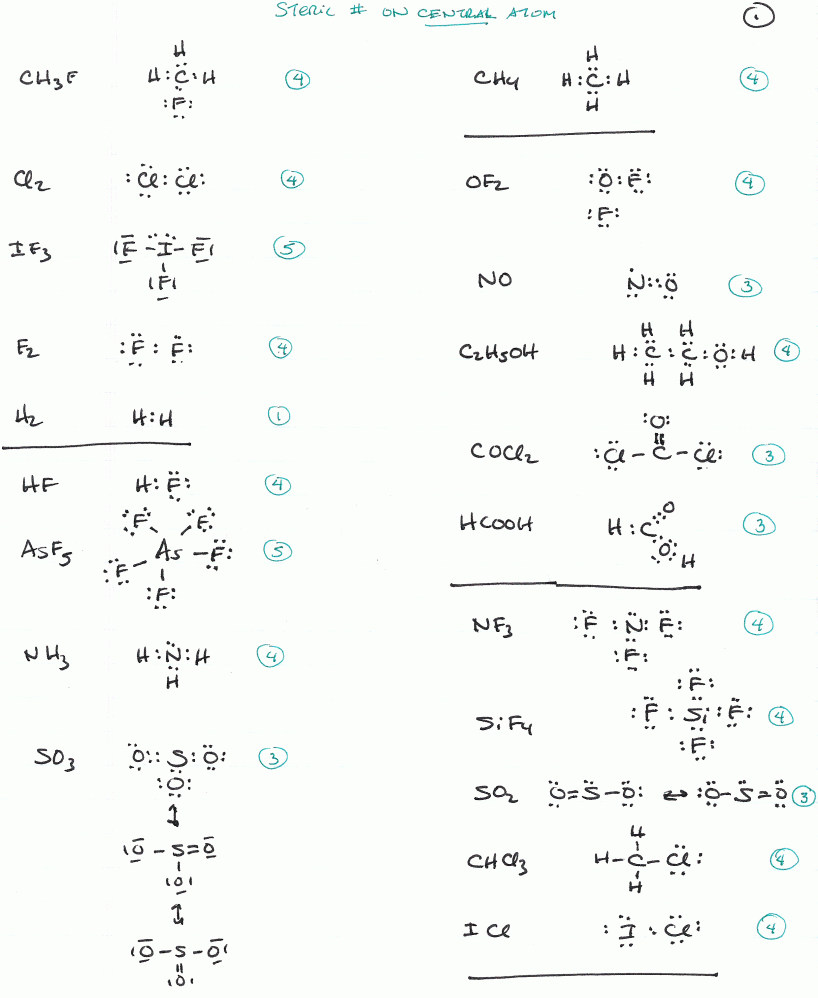 STERIC # ON CENTRAL ATOM
1
CH3F
H
H:C:H
:F:
4
Cl2
:Cl:Cl:
4
IF3
|F-I-F|
|F|
5
F2
:F:F:
4
H2
H:H
1
HF
H:F:
4
AsF5
F F
F As -F:
:F:
5
NH3
H:N:H
H
4
SO3
O::S:O:
:O:
3
↕
|O-S=O
|O|
↕
|O-S-O|
|O|
CH4
H
H:C:H
H
4
OF2
:O:F:
:F:
4
NO
N::O
3
C2H5OH
H H
H:C:C:O:H
H H
4
COCl2
:O:
:Cl-C-Cl:
3
HCOOH
O
H:C
O
H
3
NF3
:F:N:F:
:F:
4
SiF4
:F:
:F:Si:F:
:F:
4
SO2
O=S-O: ↔ :O-S=O
3
CHCl3
H
H-C-Cl:
H
4
ICl
:I:Cl:
4